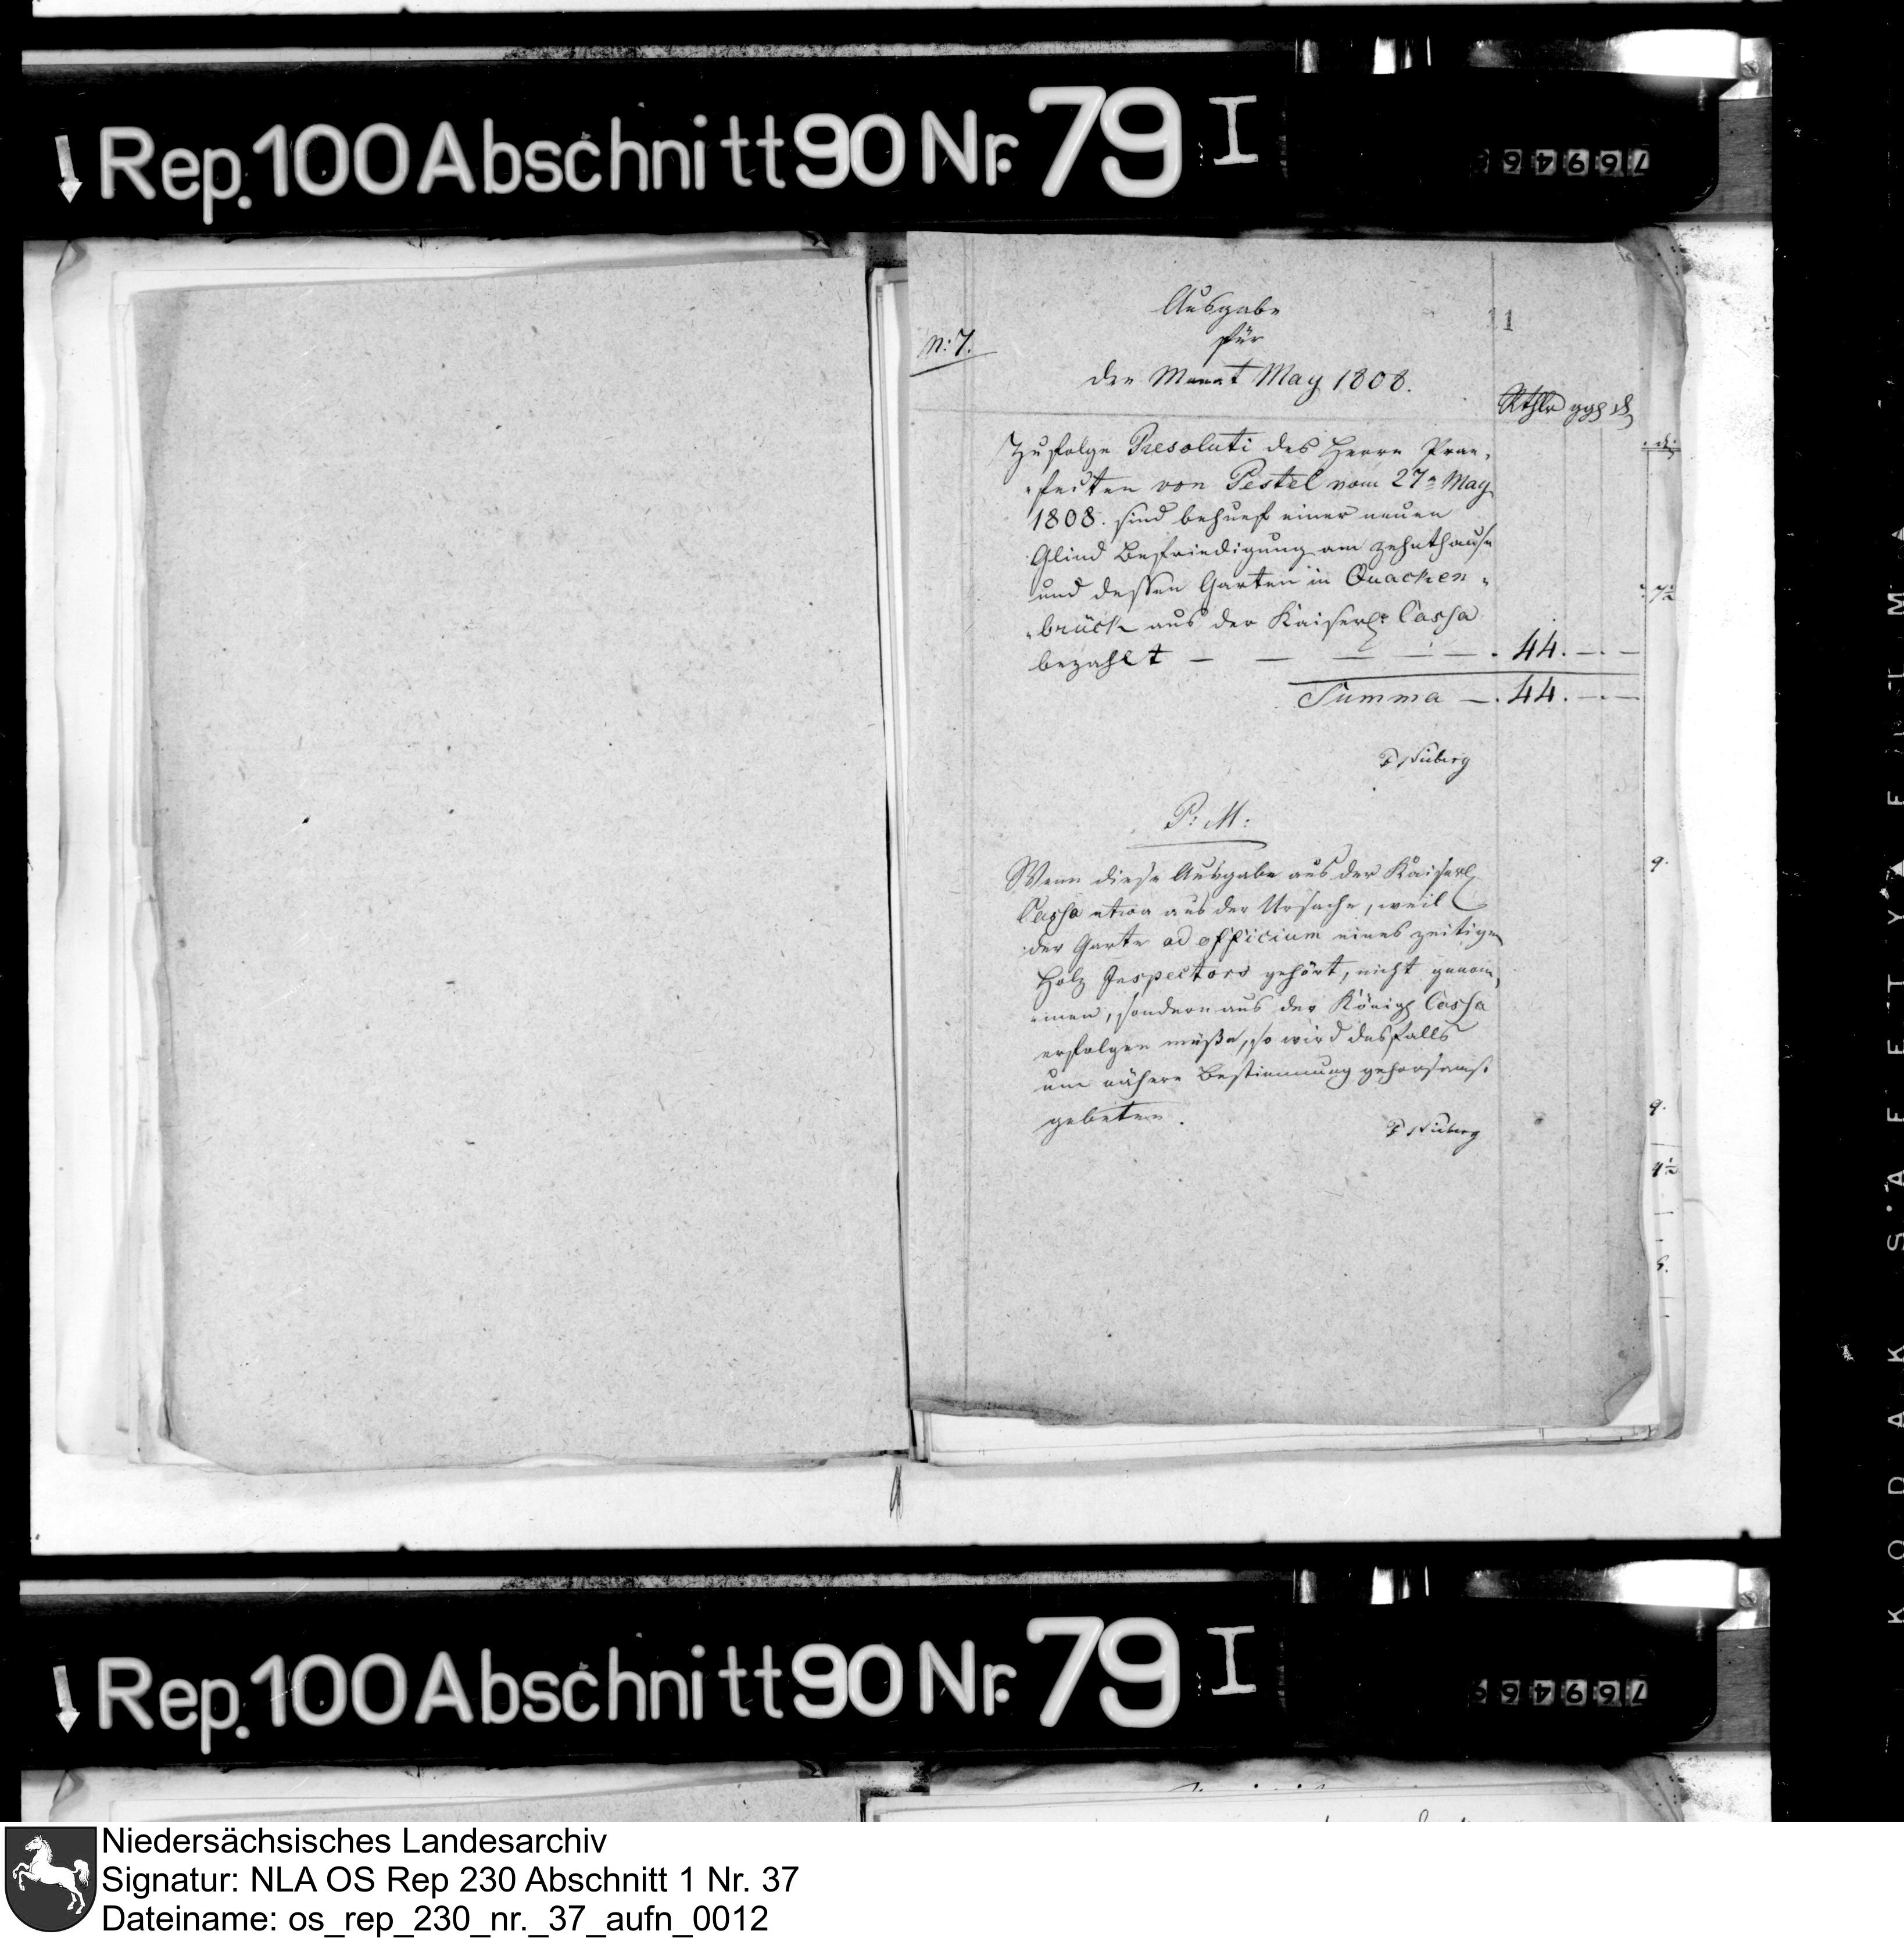 Rep. 100 Abschnitt 90 Nr. 79 I
769946
11
Ausgabe
für
N: 7.
den Monat May 1808.
Rthlr ggl d
Zufolge Resoluti des Herrn Prae-
-fecten von Pestel vom 27n May
1808. sind behuef einer neuen
Glind Befriedigung am Zehnthause
und dessen Garten in Quacken-
-brück aus der Kaiserl: Cassa
bezahlt — — — — — . 44. — —
Summa — . 44. — —
P: M:
Wenn diese Ausgabe aus der Kaiserl
Cassa etwa aus der Ursache, weil
der Garte ad officium eines zeitigen
Holz Inspectors gehört, nicht genom-
-men, sondern aus der Königl Cassa
erfolgen müße, so wird desfalls
um nähere Bestimmung gehorsamst
gebeten.
Rep. 100 Abschnitt 90 Nr. 79 I
KODAK SAFETY
Niedersächsisches Landesarchiv
Signatur: NLA OS Rep 230 Abschnitt 1 Nr. 37
Dateiname: os_rep_230_nr._37_aufn_0012